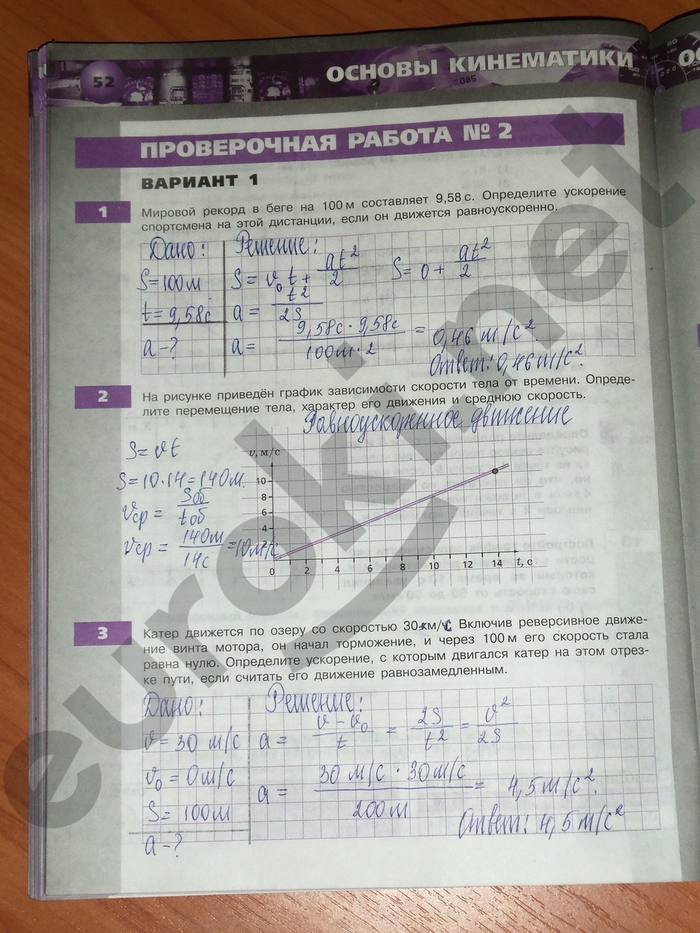 52
ОСНОВЫ КИНЕМАТИКИ
ПРОВЕРОЧНАЯ РАБОТА № 2
ВАРИАНТ 1
1
Мировой рекорд в беге на 100 м составляет 9,58 с. Определите ускорение
спортсмена на этой дистанции, если он движется равноускоренно.
Дано: Решение:
S=100м S = v₀t + at²/2 S = 0 + at²/2
t = 9,58с a = t²/2S
a - ? a = 9,58с · 9,58с / 100м · 2 = 0,46 м/с².
Ответ: 0,46 м/с².
2
На рисунке приведён график зависимости скорости тела от времени. Опреде-
лите перемещение тела, характер его движения и среднюю скорость.
Равноускоренное движение
S = vt
S = 10·14 = 140м.
vср = Sоб/tоб
vср = 140м/14с = 10м/с
v, м/с
10
8
6
4
2
0 2 4 6 8 10 12 14 t, с
3
Катер движется по озеру со скоростью 30 км/ч. Включив реверсивное движе-
ние винта мотора, он начал торможение, и через 100 м его скорость стала
равна нулю. Определите ускорение, с которым двигался катер на этом отрез-
ке пути, если считать его движение равнозамедленным.
Дано: Решение:
v = 30 м/с a = v - v₀/t = 2S/t² = v²/2S
v₀ = 0м/с
S = 100м a = 30 м/с · 30 м/с / 200м = 4,5 м/с².
a - ? Ответ: 4,5 м/с²
euroki.net